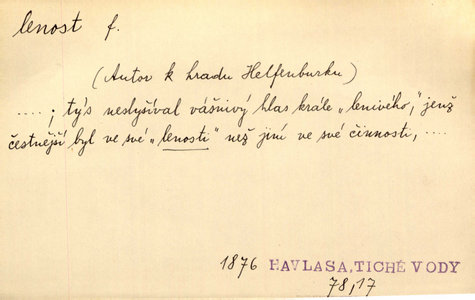 lenost f.
(Autor k hradu Helfenburku)
....; tys neslyšíval vášnivý hlas krále „lenivého," jenž
čestnější byl ve své „lenosti" než jiní ve své činnosti, ....
1876 HAVLASA, TICHÉ VODY
78,17